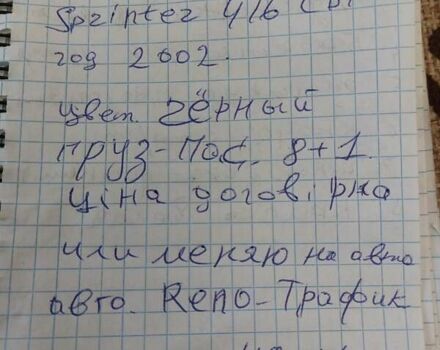 Sprinter 416 CDI
год 2002.
цвет. чёрный
груз-пас. 8+1.
ціна договірна
или меняю на авто
авто. Reno-Трафик